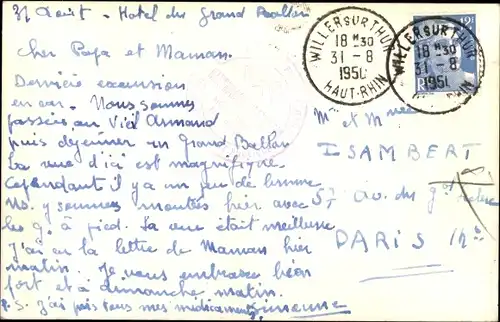 31 Août - Hotel du Grand Ballon
Cher Papa et Maman.
Dernière excursion
en car. Nous sommes
passés au Vieil Armand
puis déjeuner au Grand Ballon
La vue d'ici est magnifique.
Cependant il y a un peu de brume
Ns. y sommes montés hier avec
les g. à pied. La vue était meilleure
J'ai eu la lettre de Maman hier
matin. Je vous embrasse bien
fort et à dimanche matin.
P.S. J'ai pris tous mes médicaments
Simonne
WILLER SUR THUR
18 H 30
31 - 8
1950
HAUT-RHIN
WILLER SUR THUR
18 H 30
31 - 8
1950
RHIN
12F
Mr et Mme
ISAMBERT
av. du Gal
PARIS